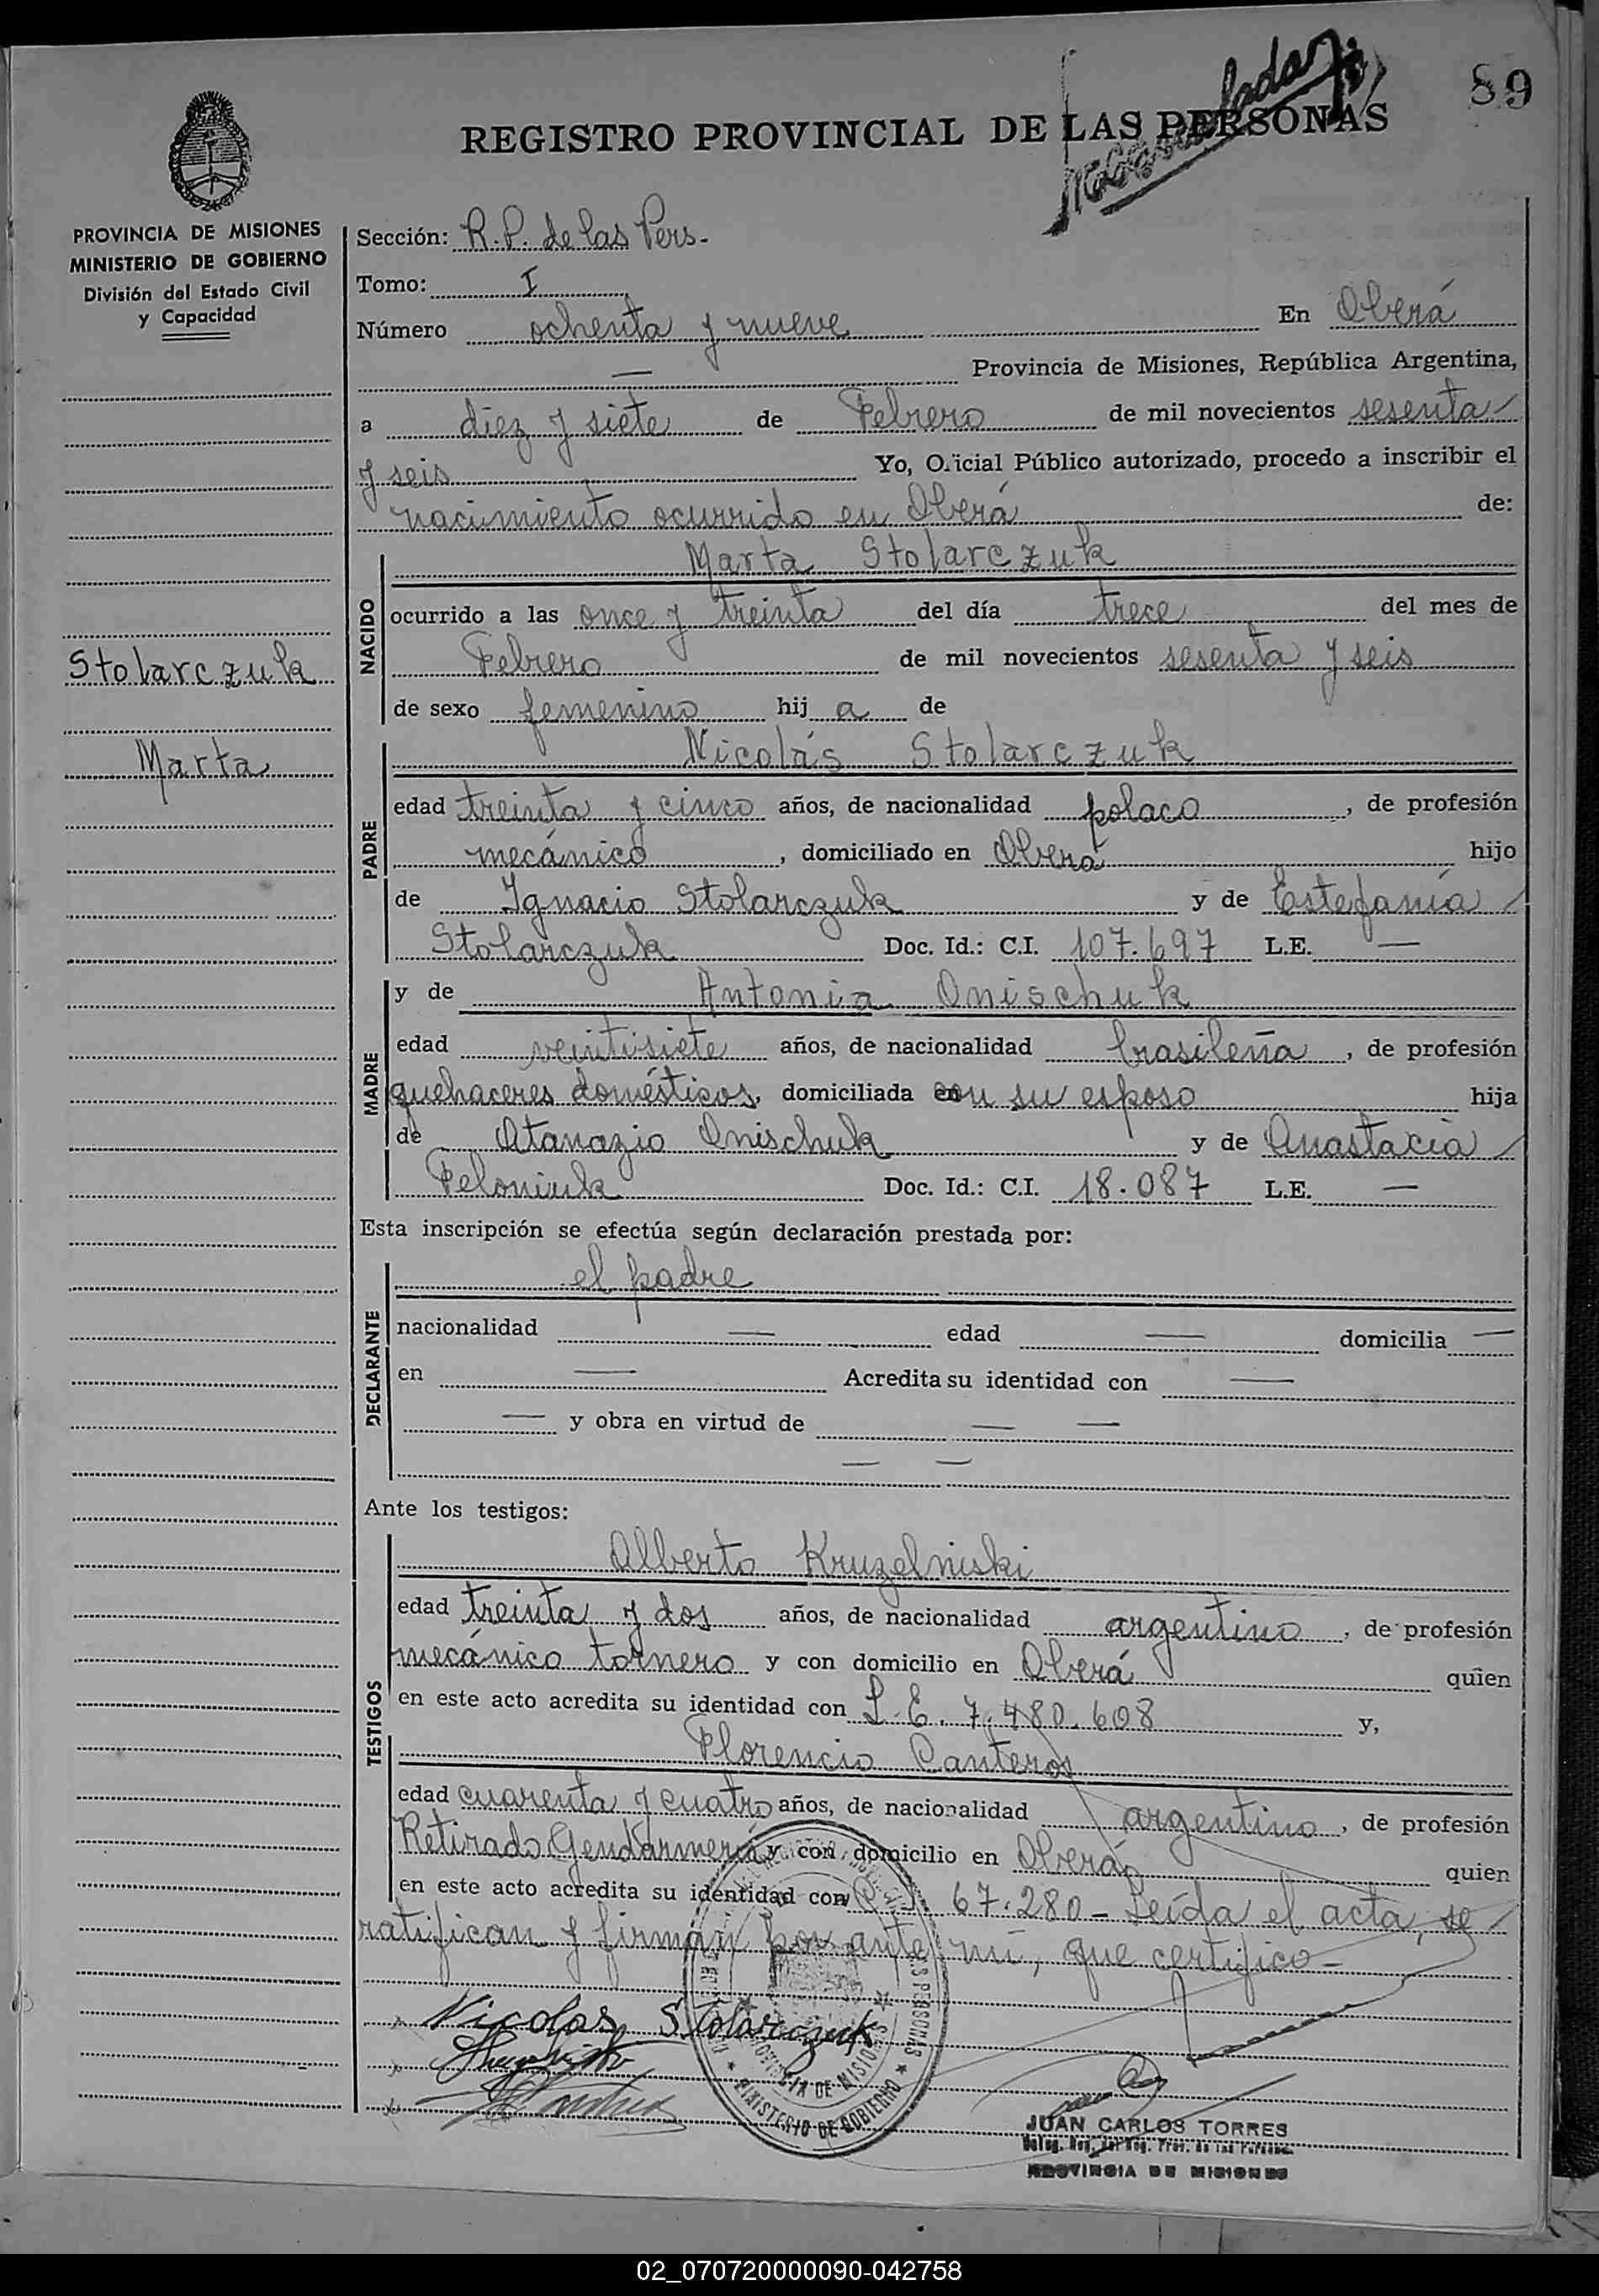 89
REGISTRO PROVINCIAL DE LAS PERSONAS
PROVINCIA DE MISIONES
MINISTERIO DE GOBIERNO
División del Estado Civil
y Capacidad
Stolarczuk
Marta
Sección: R.P. de las Pers.
Tomo: I
Número ochenta y nueve En Oberá
— Provincia de Misiones, República Argentina,
a diez y siete de Febrero de mil novecientos sesenta
y seis Yo, Oficial Público autorizado, procedo a inscribir el
nacimiento ocurrido en Oberá de:
NACIDO
Marta Stolarczuk
ocurrido a las once y treinta del día trece del mes de
Febrero de mil novecientos sesenta y seis
de sexo femenino hij a de
PADRE
Nicolás Stolarczuk
edad treinta y cinco años, de nacionalidad polaca, de profesión
mecánico, domiciliado en Oberá hijo
de Ignacio Stolarczuk y de Estefanía
Stolarczuk Doc. Id.: C.I. 107.697 L.E. —
MADRE
y de Antonia Onischuk
edad veintisiete años, de nacionalidad brasileña, de profesión
quehaceres domésticos, domiciliada con su esposo hija
de Atanazio Onischuk y de Anastacia
Feloniuk Doc. Id.: C.I. 18.087 L.E. —
Esta inscripción se efectúa según declaración prestada por:
DECLARANTE
el padre
nacionalidad — edad — domicilia —
en — Acredita su identidad con —
— y obra en virtud de — —
— —
Ante los testigos:
TESTIGOS
Alberto Kruzelniski
edad treinta y dos años, de nacionalidad argentino, de profesión
mecánico tornero y con domicilio en Oberá quien
en este acto acredita su identidad con L.E. 7.480.608 y,
Florencio Canteros
edad cuarenta y cuatro años, de nacionalidad argentino, de profesión
Retirado Gendarmería y con domicilio en Oberá quien
en este acto acredita su identidad con 67.280 - Leída el acta, se
ratifican y firman por ante mí, que certifico -
Nicolas Stolarczuk
PROVINCIA DE MISIONES
MINISTERIO DE GOBIERNO
JUAN CARLOS TORRES
PROVINCIA DE MISIONES
02_070720000090-042758